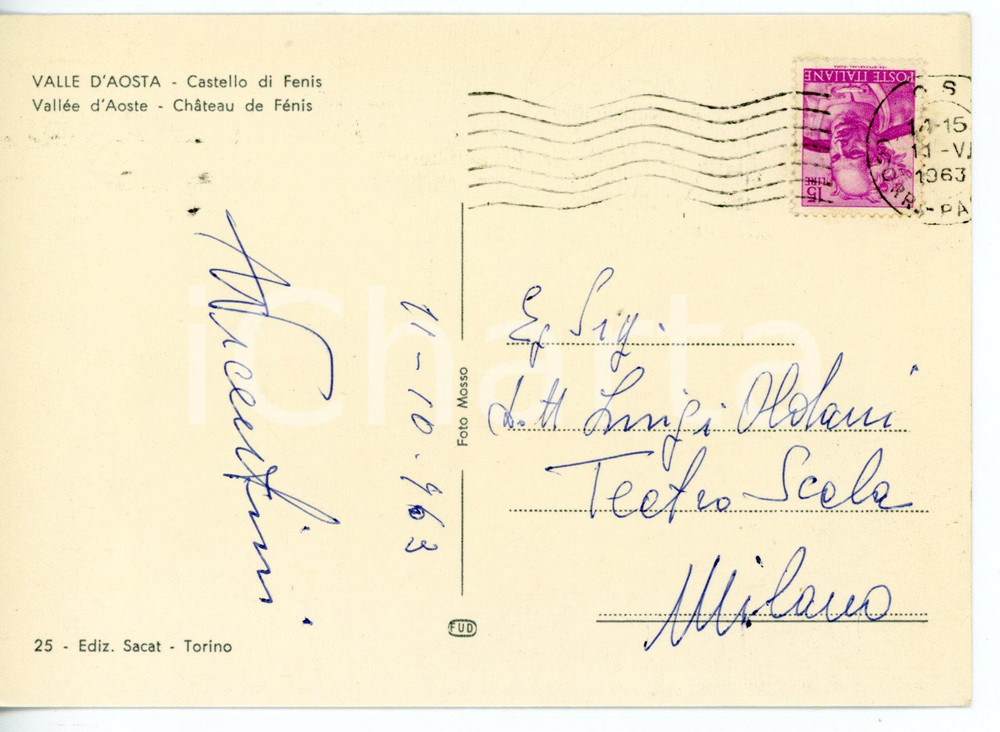 VALLE D'AOSTA - Castello di Fenis
Vallée d'Aoste - Château de Fénis
POSTE ITALIANE
15
LIRE
14-15
1963
11-10-963
Foto Mosso
Eg Sig.
Dott Luigi Oldani
Teatro Scala
Milano
FUD
25 - Ediz. Sacat - Torino
iCharta